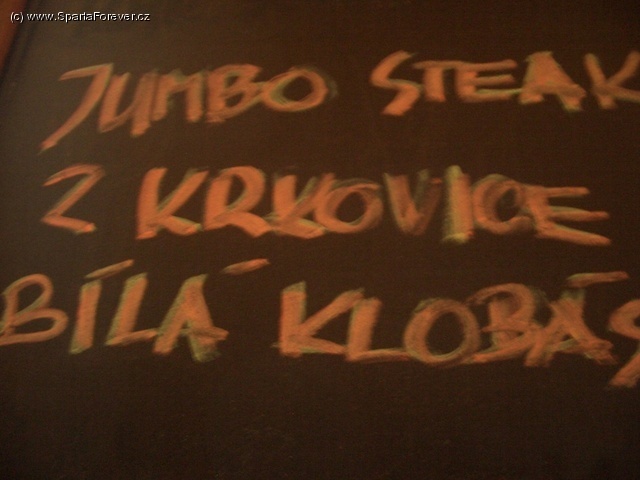 (c) www.SpartaForever.cz
JUMBO STEAK
Z KRKOVICE
BÍLÁ KLOBÁS